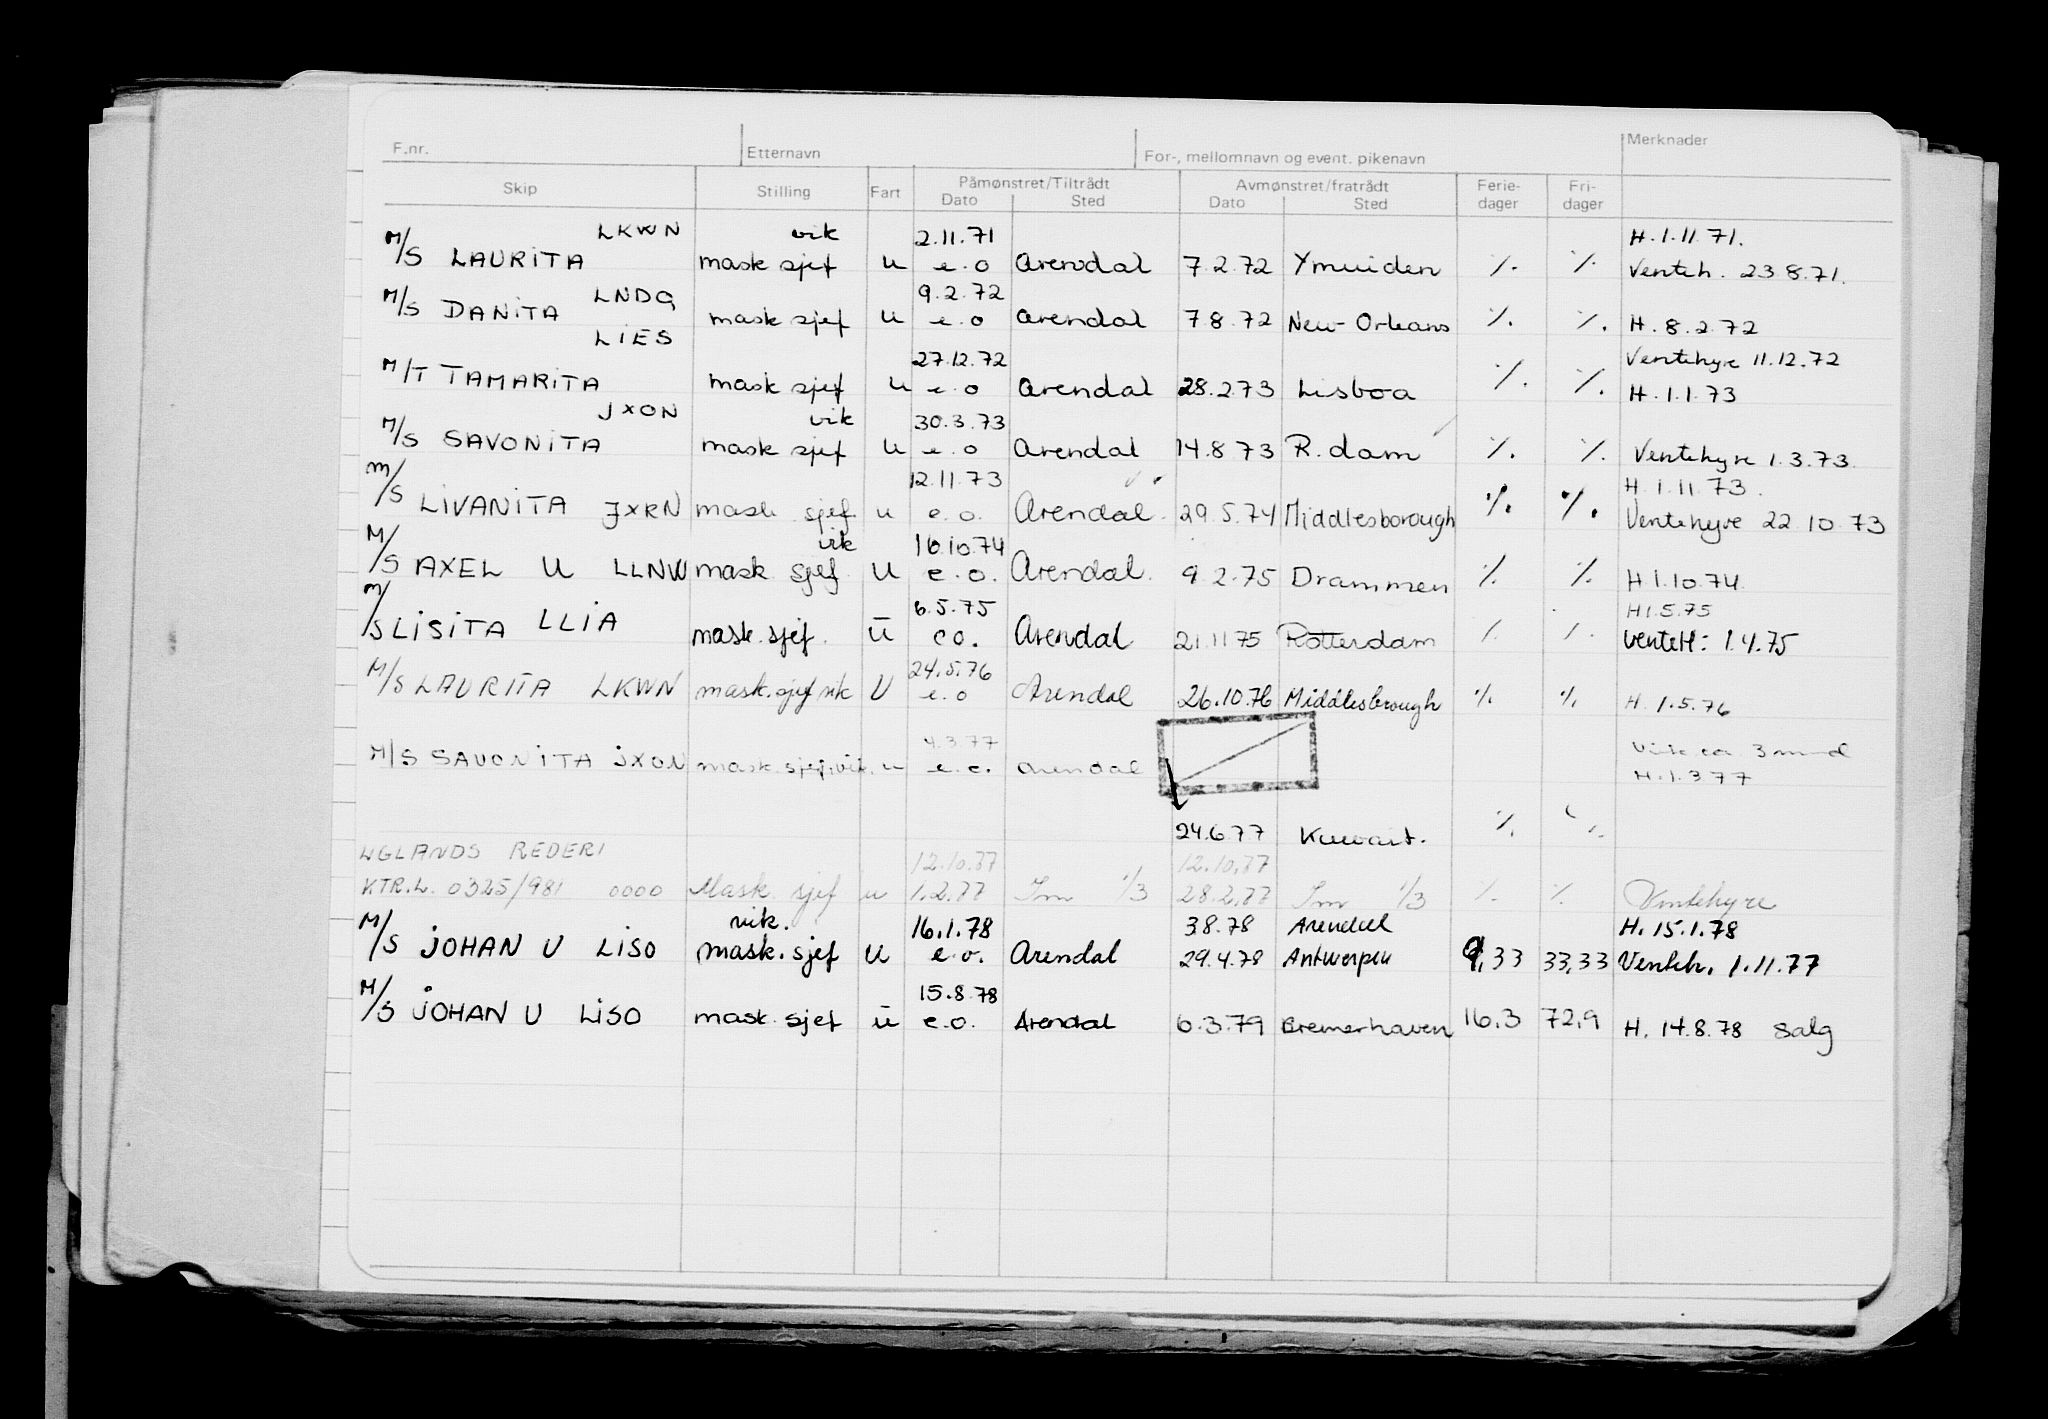 F.nr. Etternavn For-, mellomnavn og event. pikenavn Merknader
Skip Stilling Fart Påmønstret/Tiltrådt Avmønstret/fratrådt Ferie- Fri-
Dato Sted Dato Sted dager dager
LKWN vik 2.11.71 H.1.11.71.
M/S LAURITA mask sjef u e.o Arendal 7.2.72 Ymuiden ٪. ٪. Venteh. 23.8.71.
LNDQ 9.2.72
M/S DANITA mask sjef u e.o Arendal 7.8.72 New-Orleans ٪. ٪. H.8.2.72
LIES 27.12.72 Ventehyre 11.12.72
M/T TAMARITA mask sjef u e.o Arendal 28.2.73 Lisboa ٪. ٪. H.1.1.73
JXON vik 30.3.73
M/S SAVONITA mask sjef u e.o Arendal 14.8.73 R.dam ٪. ٪. Ventehyre 1.3.73.
12.11.73 H.1.11.73.
M/S LIVANITA JXRN mask sjef u e.o. Arendal 29.5.74 Middlesborough ٪. ٪. Ventehyre 22.10.73
vik 16.10.74
M/S AXEL U LLNW mask sjef u e.o. Arendal. 9.2.75 Drammen ٪. ٪. H1.10.74.
6.5.75 H1.5.75
M/S LISITA LLIA mask.sjef. u eo. Arendal 21.11.75 Rotterdam ٪. ٪. venteH: 1.4.75
24.5.76
M/S LAURITA LKWN mask.sjef vik U e.o Arendal 26.10.76 Middlesbrough ٪. ٪. H.1.5.76
4.3.77 Vik ca 3 mnd
M/S SAVONITA JXON mask.sjef.vik. u e.o. Arendal H.1.3.77
24.6.77 Kuwait. ٪. ٪.
UGLANDS REDERI 12.10.77 12.10.77
KTR.L. 0325/981 0000 Mask. sjef u 1.2.77 Im 1/3 28.2.77 Im 1/3 ٪. ٪. Ventehyre
vik. 16.1.78 3.8.78 Arendal H.15.1.78
M/S JOHAN U LISO mask.sjef u e.o. Arendal 29.4.78 Antwerpen 9,33 33,33 Venteh. 1.11.77
15.8.78
M/S JOHAN U LISO mask.sjef u e.o. Arendal 6.3.79 Bremerhaven 16,3 72,9 H.14.8.78 salg